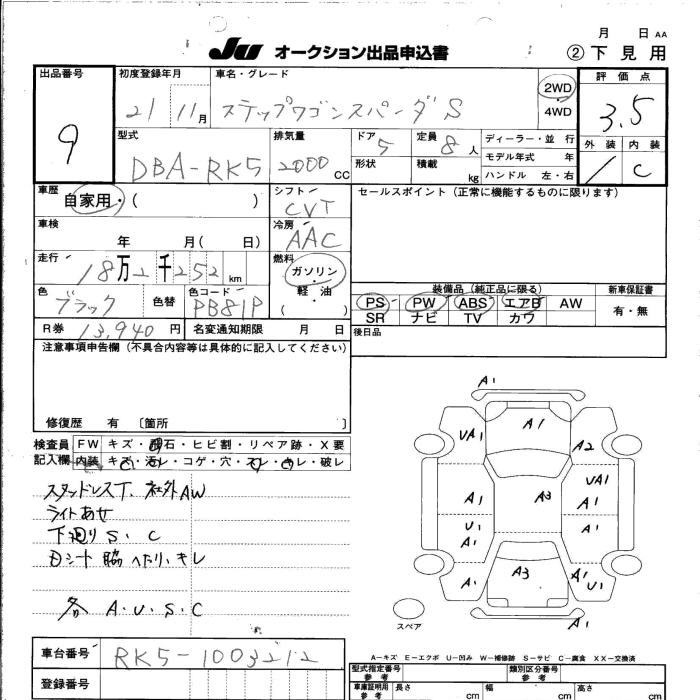 月 日 AA
JU オークション出品申込書 ②下見用
出品番号 初度登録年月 車名・グレード 評価点
9 21 11月 ステップワゴンスパーダS 2WD 4WD 3.5
型式 排気量 ドア 5 定員 8人 ディーラー・並行 外装 内装
DBA-RK5 2000 CC 形状 積載 kg モデル年式 年 C
ハンドル 左・右
車歴 自家用・( ) シフト CVT セールスポイント(正常に機能するものに限ります)
車検 年 月( 日) 冷房 AAC
走行 18万2千252 km 燃料 ガソリン・軽・油 ( )
色 ブラック 色替 色コード PB81P 装備品(純正品に限る) 新車保証書
PS PW ABS エアB AW 有・無
SR ナビ TV カワ
R券 13,940円 名変通知期限 月 日 後日品
注意事項申告欄(不具合内容等は具体的に記入してください)
修復歴 有 〔箇所 〕
検査員 FW キズ・飛石・ヒビ割・リペア跡・X要
記入欄 内装 キズ・汚レ・コゲ・穴・スレ・キレ・破レ
スタッドレスT. 社外AW
ライトあせ
下廻り S. C
Dシート 脇 へたり、キレ
各 A.U.S.C
A1
A1
UA1 A2
UA1
A1 A3 A1
U1 A1 A1
A1 A3 A1 U1
A1
スペア
A-キズ E-エクボ U-凹み W-補修跡 S-サビ C-腐食 XX-交換済
車台番号 RK5-1003212 型式指定番号 参考 類別区分番号 参考
登録番号 車庫証明用 参考 長さ cm 幅 cm 高さ cm